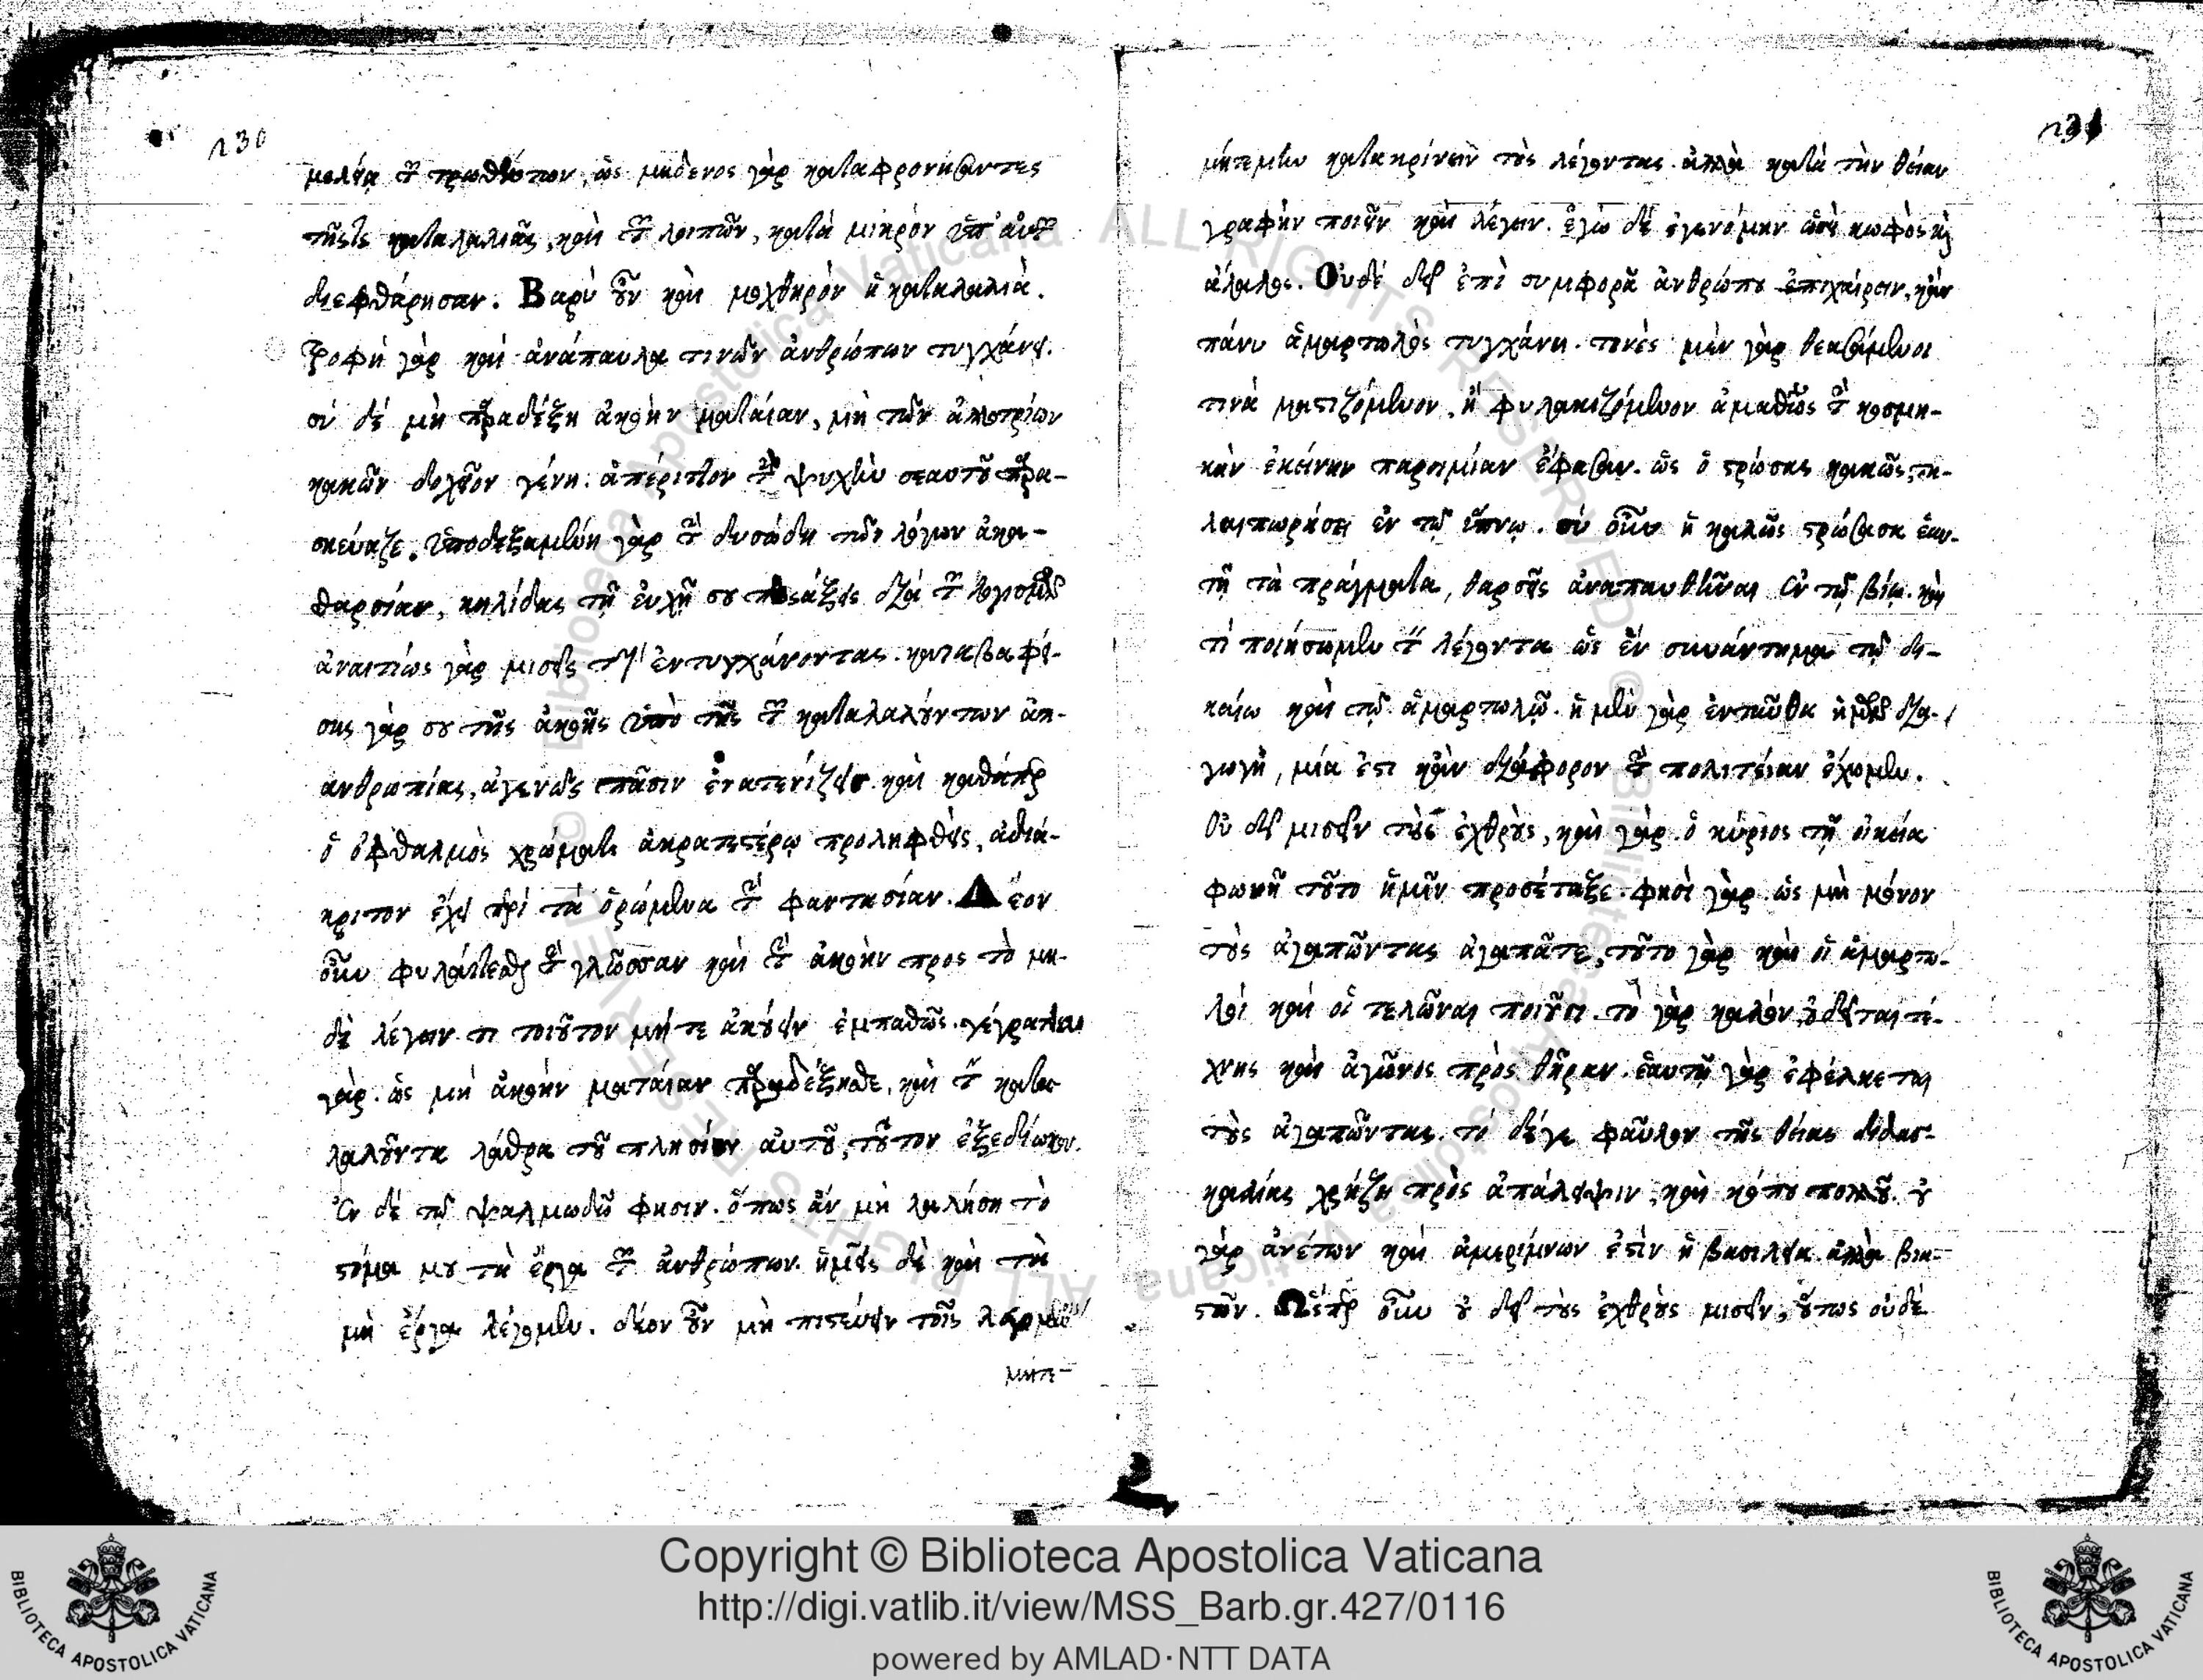 230
μελεία τῶν τρωθέντων, ὡς μηδενος γὰρ καταφρονήσαντες
τῆς καταλαλιᾶς, καὶ τῶν λοιπῶν, κατὰ μικρὸν ὑπ' αὐτῶν
διεφθάρησαν. Βαρὺ οὖν καὶ μοχθηρὸν ἡ καταλαλιὰ.
Τροφὴ γὰρ καὶ ἀνάπαυλα τινῶν ἀνθρώπων τυγχάνει.
σὺ δὲ μὴ παραδέξῃ ἀκοὴν ματαίαν, μὴ τῶν ἀλλοτρίων
κακῶν δοχεῖον γένῃ. ἀπέριττον τὴν ψυχὴν σεαυτοῦ παρα-
σκεύαζε. ὑποδεξαμένη γὰρ τὴν δυσώδη τῶν λόγων ἀκα-
θαρσίαν, κηλίδας τῇ εὐχῇ σου διὰ τῶν λογισμῶν
ἀναιτίως γὰρ μισεῖς τοὺς ἐντυγχάνοντας. καταβαφεί-
σης γὰρ σου τῆς ἀκοῆς ὑπὸ τῆς τῶν καταλαλούντων ἀπ-
ανθρωπίας, ἀγενῶς πᾶσιν ἐνατενίζεις. καὶ καθάπερ
ὁ ὀφθαλμὸς χρώματι ἀκρατεστέρῳ προληφθεὶς, ἀδιά-
κριτον ἔχει περὶ τὰ ὁρώμενα τὴν φαντασίαν. Δέον
οὖν φυλάττεσθαι τὴν γλῶσσαν καὶ τὴν ἀκοὴν προς τὸ μη-
δὲ λέγειν τι τοιοῦτον μήτε ἀκούειν ἐμπαθῶς. γέγραπται
γὰρ. ὡς μὴ ἀκοὴν ματαίαν παραδέξησθε, καὶ τὸν κατα-
λαλοῦντα λάθρα τοῦ πλησίον αὐτοῦ, τοῦτον ἐξεδίωκον.
Ἐν δὲ τῷ ψαλμωδῷ φησιν. ὅπως ἂν μὴ λαλήσῃ τὸ
στόμα μου τὰ ἔργα τῶν ἀνθρώπων. ἡμεῖς δὲ καὶ τὰ
μὴ ἔργα λέγομεν. δέον οὖν μὴ πιστεύειν τοῖς λεγομένοις
μήτε
231
μήτε μὴν κατακρίνειν τοὺς λέγοντας. ἀλλὰ κατὰ τὴν θείαν
γραφὴν ποιεῖν καὶ λέγειν. ἐγὼ δὲ ἐγενόμην ὡσεὶ κωφὸς καὶ
ἄλαλος. Οὐδὲ δεῖ ἐπὶ συμφορᾷ ἀνθρώπου ἐπιχαίρειν, κἂν
πάνυ ἁμαρτωλὸς τυγχάνῃ. τινὲς μὲν γὰρ θεασάμενοι
τινὰ μαστιζόμενον, ἢ φυλακιζόμενον ἀμαθῶς τὴν κοσμι-
κὴν ἐκείνην παροιμίαν ἔφασαν. ὡς ὁ στρώσας κακῶς, τα-
λαιπωρήσει ἐν τῷ ὕπνῳ. σὺ οὖν ἡ καλῶς στρώσασα ἑαυ-
τῇ τὰ πράγματα, θαρσεῖς ἀναπαυθῆναι ἐν τῷ βίῳ. καὶ
τί ποιήσωμεν τὸν λέγοντα ὡς ἓν συνάντημα τῷ δι-
καίῳ καὶ τῷ ἁμαρτωλῷ. ἡ μὲν γὰρ ἐνταῦθα ἡμῶν δια-
γωγὴ, μία ἐστὶ κἂν διάφορον τὴν πολιτείαν ἔχομεν.
Οὐ δεῖ μισεῖν τοὺς ἐχθροὺς, καὶ γὰρ ὁ κύριος τῇ οἰκεία
φωνῇ τοῦτο ἡμῖν προσέταξε. φησὶ γὰρ ὡς μὴ μόνον
τοὺς ἀγαπῶντας ἀγαπᾶτε, τοῦτο γὰρ καὶ οἱ ἁμαρτω-
λοὶ καὶ οἱ τελῶναι ποιοῦσι. τὸ γὰρ καλὸν, οὐ δεῖται τέ-
χνης καὶ ἀγῶνος πρὸς θῆραν. ἑαυτῇ γὰρ ἐφέλκεται
τοὺς ἀγαπῶντας. τὸ δέγε φαῦλον τῆς θείας διδασ-
καλίας χρήζει πρὸς ἀπάλειψιν, καὶ κόπου πολλοῦ. οὐ
γὰρ ἀνέτων καὶ ἀμερίμνων ἐστὶν ἡ βασιλεία ἀλλὰ βια-
στῶν. Ὥσπερ οὖν οὐ δεῖ τοὺς ἐχθροὺς μισεῖν, οὕτως οὐδὲ
Copyright © Biblioteca Apostolica Vaticana
http://digi.vatlib.it/view/MSS_Barb.gr.427/0116
powered by AMLAD·NTT DATA
BIBLIOTECA APOSTOLICA VATICANA
BIBLIOTECA APOSTOLICA VATICANA